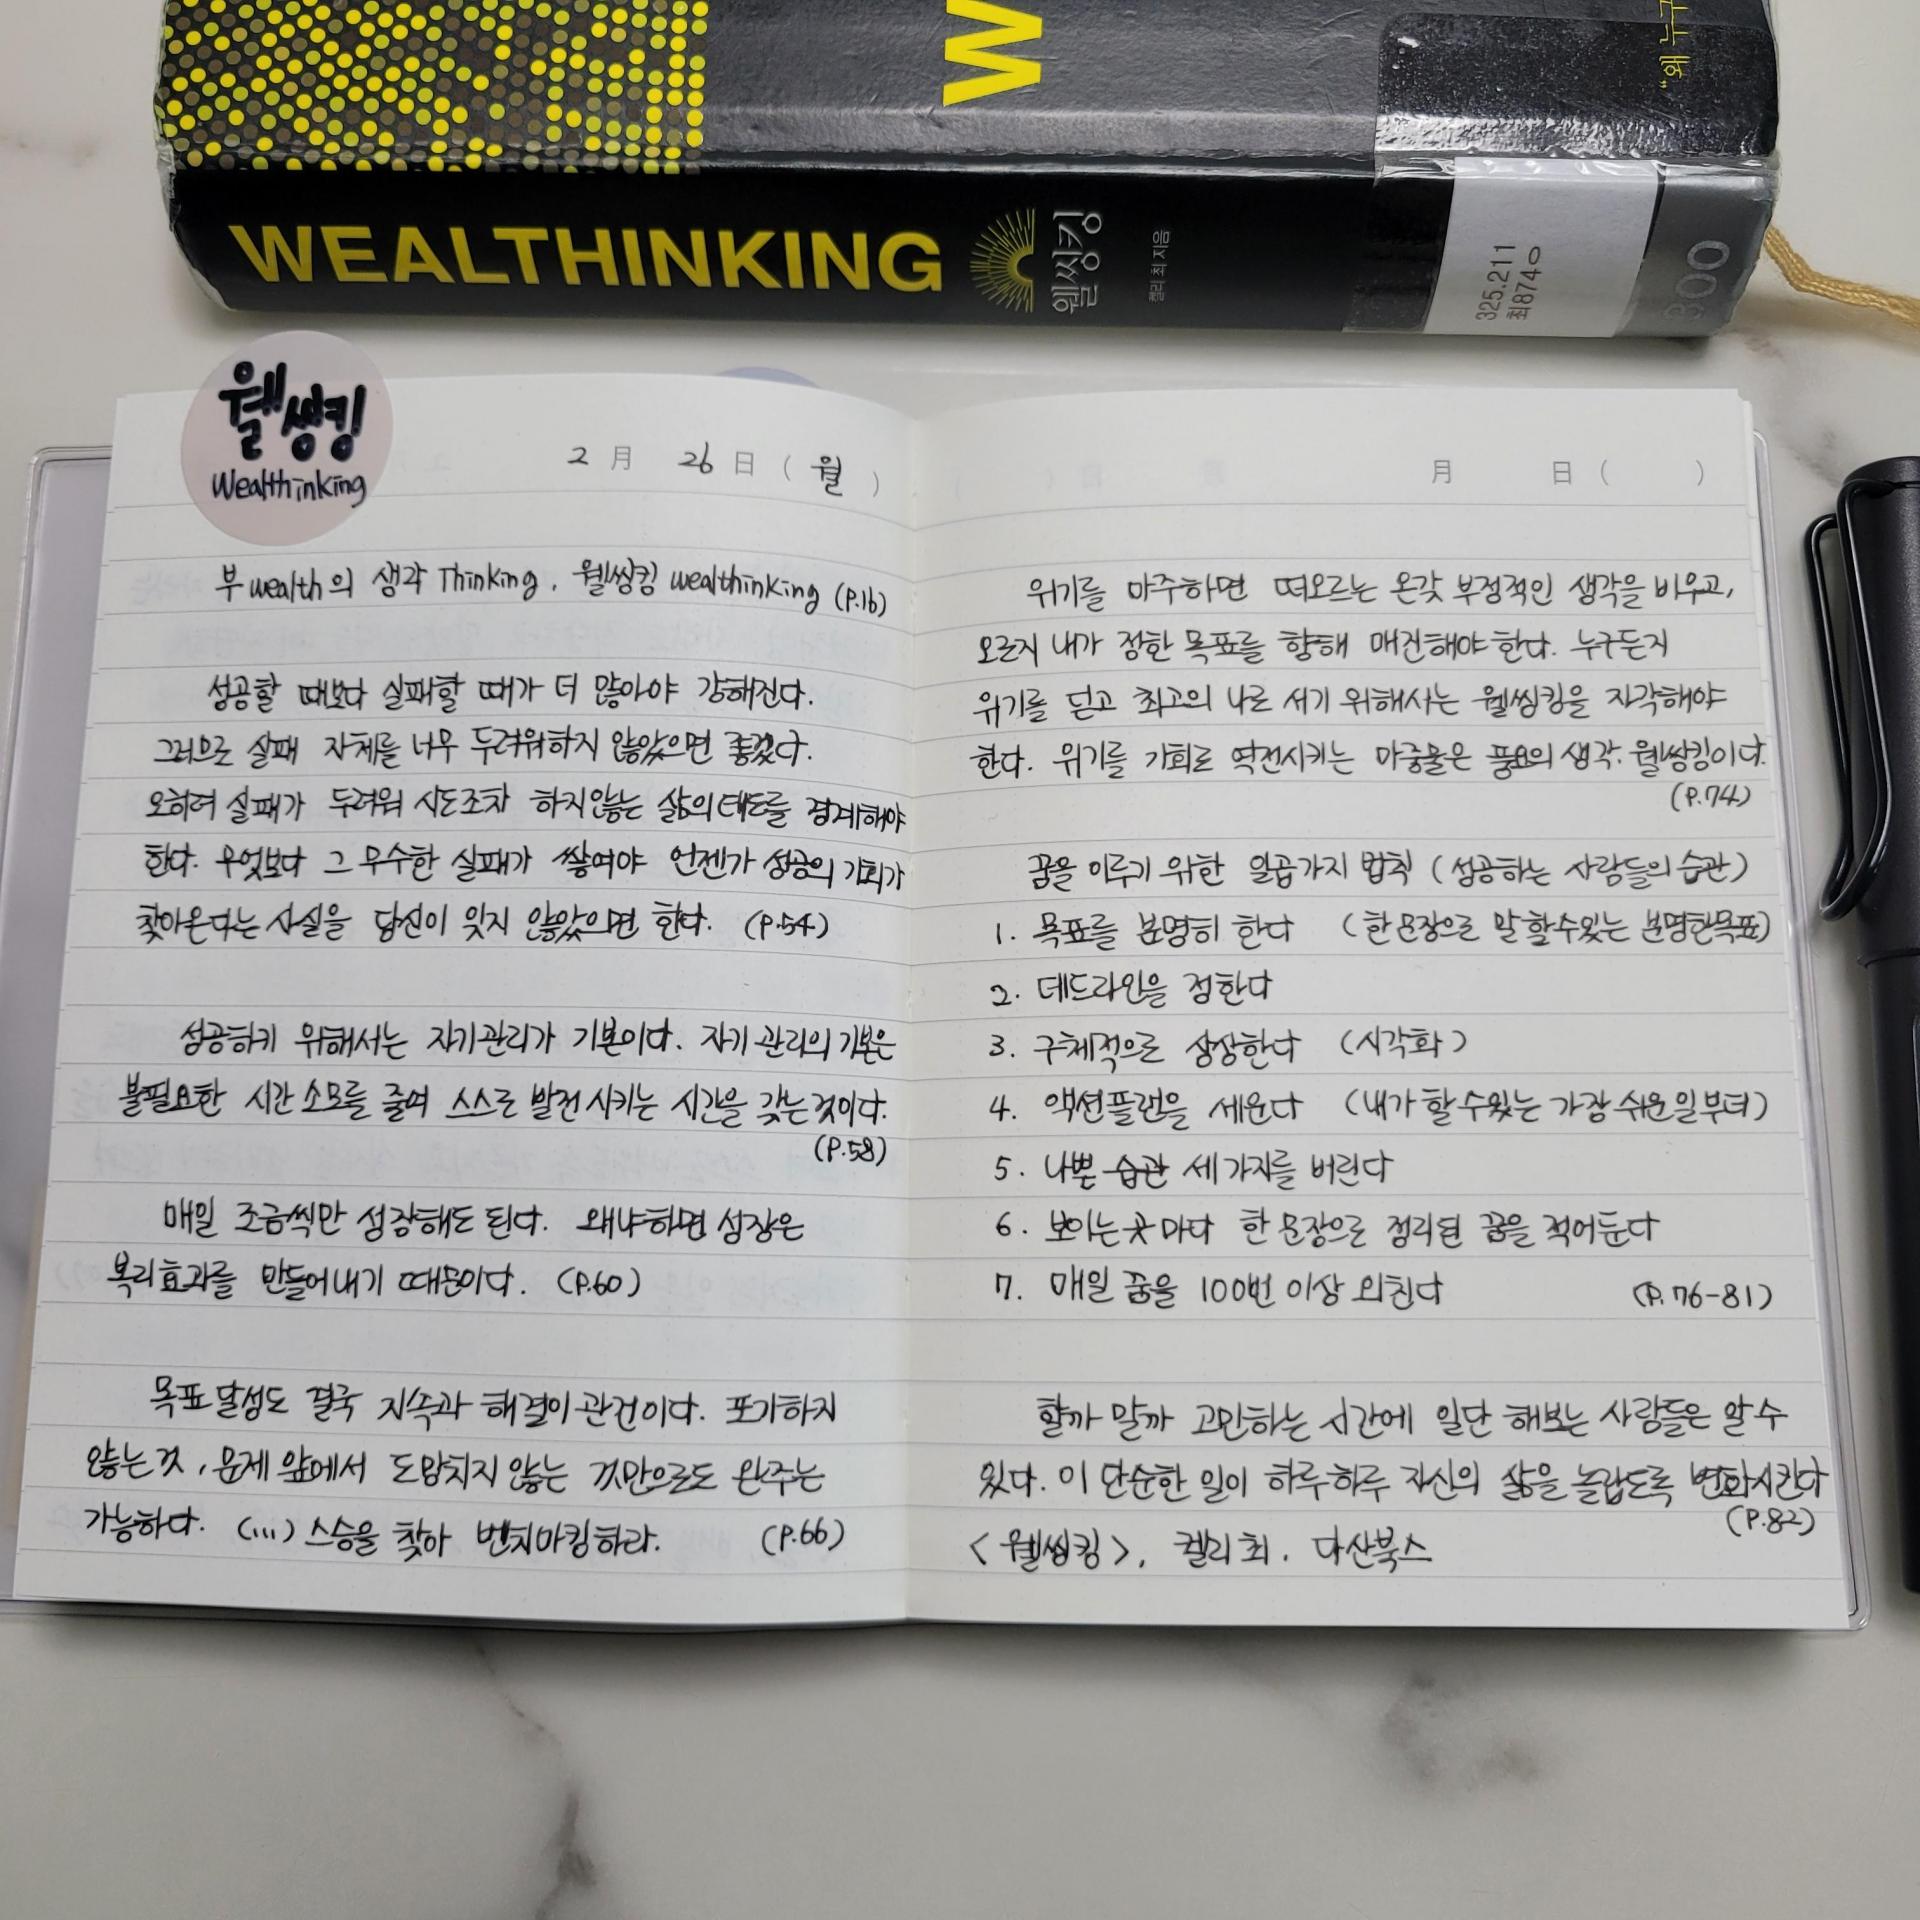 W
"왜 누구
WEALTHINKING
웰씽킹
켈리 최 지음
325.211
최874ㅇ
300
웰씽킹
Wealthinking
2 月 26 日 ( 월 )
부 wealth의 생각 Thinking, 웰씽킹 wealthinking (P.16)
성공할 때보다 실패할 때가 더 많아야 강해진다.
그러므로 실패 자체를 너무 두려워하지 않았으면 좋겠다.
오히려 실패가 두려워 시도조차 하지않는 삶의 태도를 경계해야
한다. 무엇보다 그 무수한 실패가 쌓여야 언젠가 성공의 기회가
찾아온다는 사실을 당신이 잊지 않았으면 한다. (P.54)
성공하기 위해서는 자기관리가 기본이다. 자기 관리의 기본은
불필요한 시간 소모를 줄여 스스로 발전시키는 시간을 갖는 것이다.
(P.58)
매일 조금씩만 성장해도 된다. 왜냐하면 성장은
복리효과를 만들어내기 때문이다. (P.60)
목표 달성도 결국 지속과 해결이 관건이다. 포기하지
않는 것, 문제 앞에서 도망치지 않는 것만으로도 완주는
가능하다. (...) 스승을 찾아 벤치마킹하라. (P.66)
月 日 ( )
위기를 마주하면 떠오르는 온갖 부정적인 생각을 비우고,
오로지 내가 정한 목표를 향해 매진해야 한다. 누구든지
위기를 딛고 최고의 나로 서기 위해서는 웰씽킹을 자각해야
한다. 위기를 기회로 역전시키는 마중물은 풍요의 생각. 웰씽킹이다.
(P.74)
꿈을 이루기 위한 일곱가지 법칙 (성공하는 사람들의 습관)
1. 목표를 분명히 한다 (한 문장으로 말할수있는 분명한목표)
2. 데드라인을 정한다
3. 구체적으로 상상한다 (시각화)
4. 액션플랜을 세운다 (내가 할수있는 가장 쉬운일부터)
5. 나쁜 습관 세가지를 버린다
6. 보이는 곳마다 한 문장으로 정리된 꿈을 적어둔다
7. 매일 꿈을 100번 이상 외친다 (P.76-81)
할까 말까 고민하는 시간에 일단 해보는 사람들은 알 수
있다. 이 단순한 일이 하루하루 자신의 삶을 놀랍도록 변화시킨다
(P.82)
<웰씽킹>, 켈리 최. 다산북스